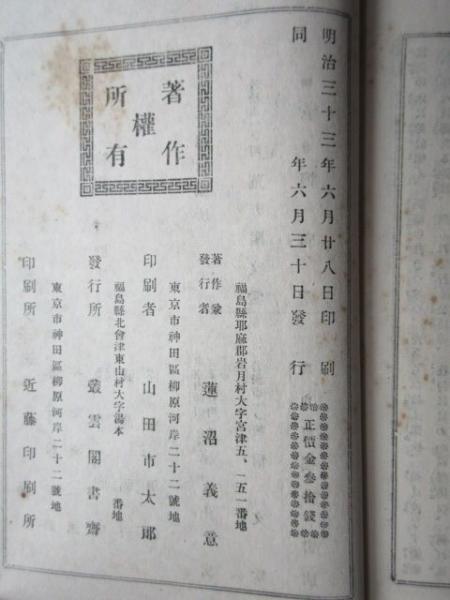 明治三十三年六月廿八日印刷
同年六月三十日發行
正價金叁拾錢
著作權所有
福島縣耶麻郡岩月村大字宮津五、一五一番地
著作兼發行者 蓮沼義意
東京市神田區柳原河岸二十二號地
印刷者 山田市太郎
福島縣北會津東山村大字湯本 番地
發行所 叢雲閣書齋
東京市神田區柳原河岸二十二號地
印刷所 近藤印刷所